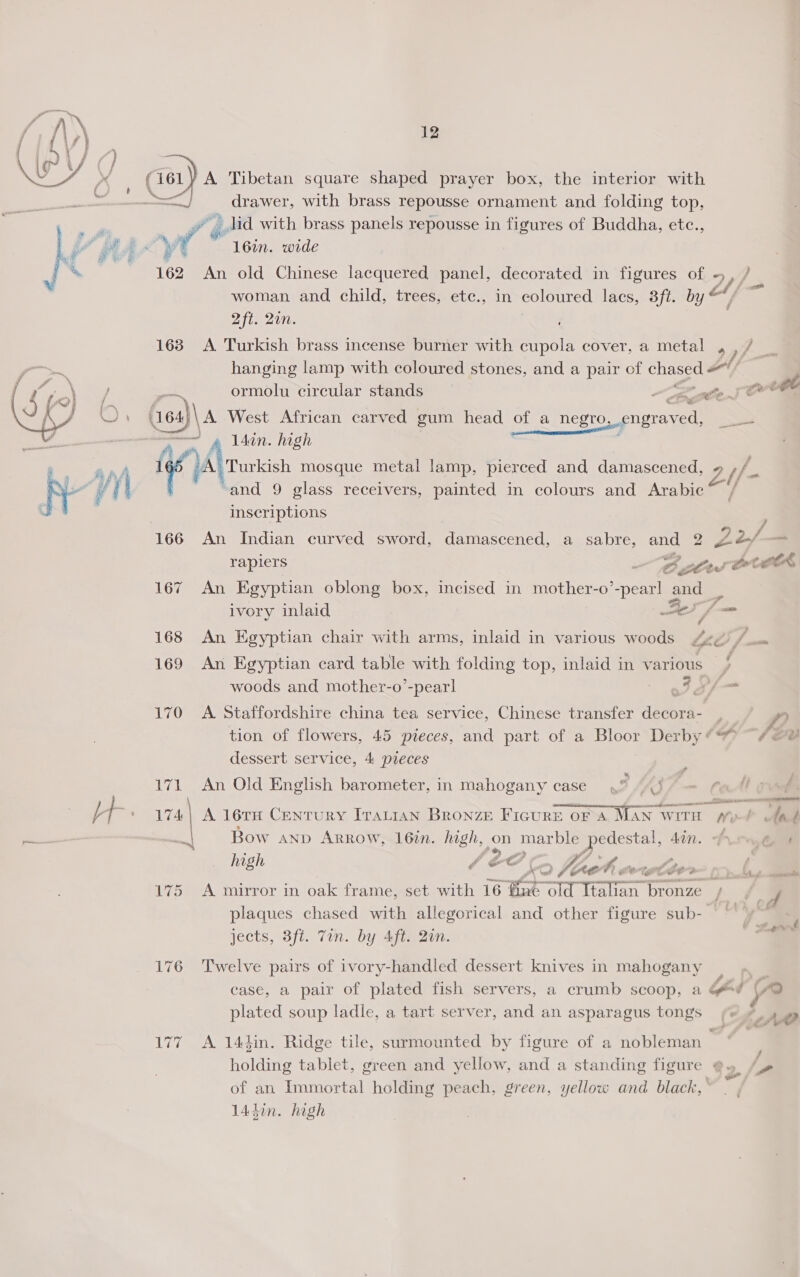 12
161 A Tibetan square shaped prayer box, the interior with
drawer, with brass repousse ornament and folding top,
lid with brass panels repousse in figures of Buddha, etc.,
16in. wide
162 An old Chinese lacquered panel, decorated in figures of
woman and child, trees, etc., in coloured lacs, 3ft. by
2ft. 2in.
163 A Turkish brass incense burner with cupola cover, a metal
hanging lamp with coloured stones, and a pair of chased
ormolu circular stands
164 A West African carved gum head of a negro, engraved,
14in. high
165 A Turkish mosque metal lamp, pierced and damascened,
and 9 glass receivers, painted in colours and Arabic
inscriptions
166 An Indian curved sword, damascened, a sabre, and 2
rapiers
167 An Egyptian oblong box, incised in mother-o'-pearl and
ivory inlaid
168 An Egyptian chair with arms, inlaid in various woods
169 An Egyptian card table with folding top, inlaid in various
woods and mother-o'-pearl
170 A Staffordshire china tea service, Chinese transfer decora-
tion of flowers, 45 pieces, and part of a Bloor Derby
dessert service, 4 pieces
171 An Old English barometer, in mahogany case
174 A 16TH CENTURY ITALIAN BRONZE FIGURE OF A MAN WITH
BOW AND ARROW, 16in. high, on marble pedestal, 4in.
high
175 A mirror in oak frame, set with 16 fine old Italian bronze
plaques chased with allegorical and other figure sub-
jects, 3ft. 7in. by 4ft. 2in.
176 Twelve pairs of ivory-handled dessert knives in mahogany
case, a pair of plated fish servers, a crumb scoop, a
plated soup ladle, a tart server, and an asparagus tongs
177 A 14½in. Ridge tile, surmounted by figure of a nobleman
holding tablet, green and yellow, and a standing figure
of an Immortal holding peach, green, yellow and black,
14½in. high